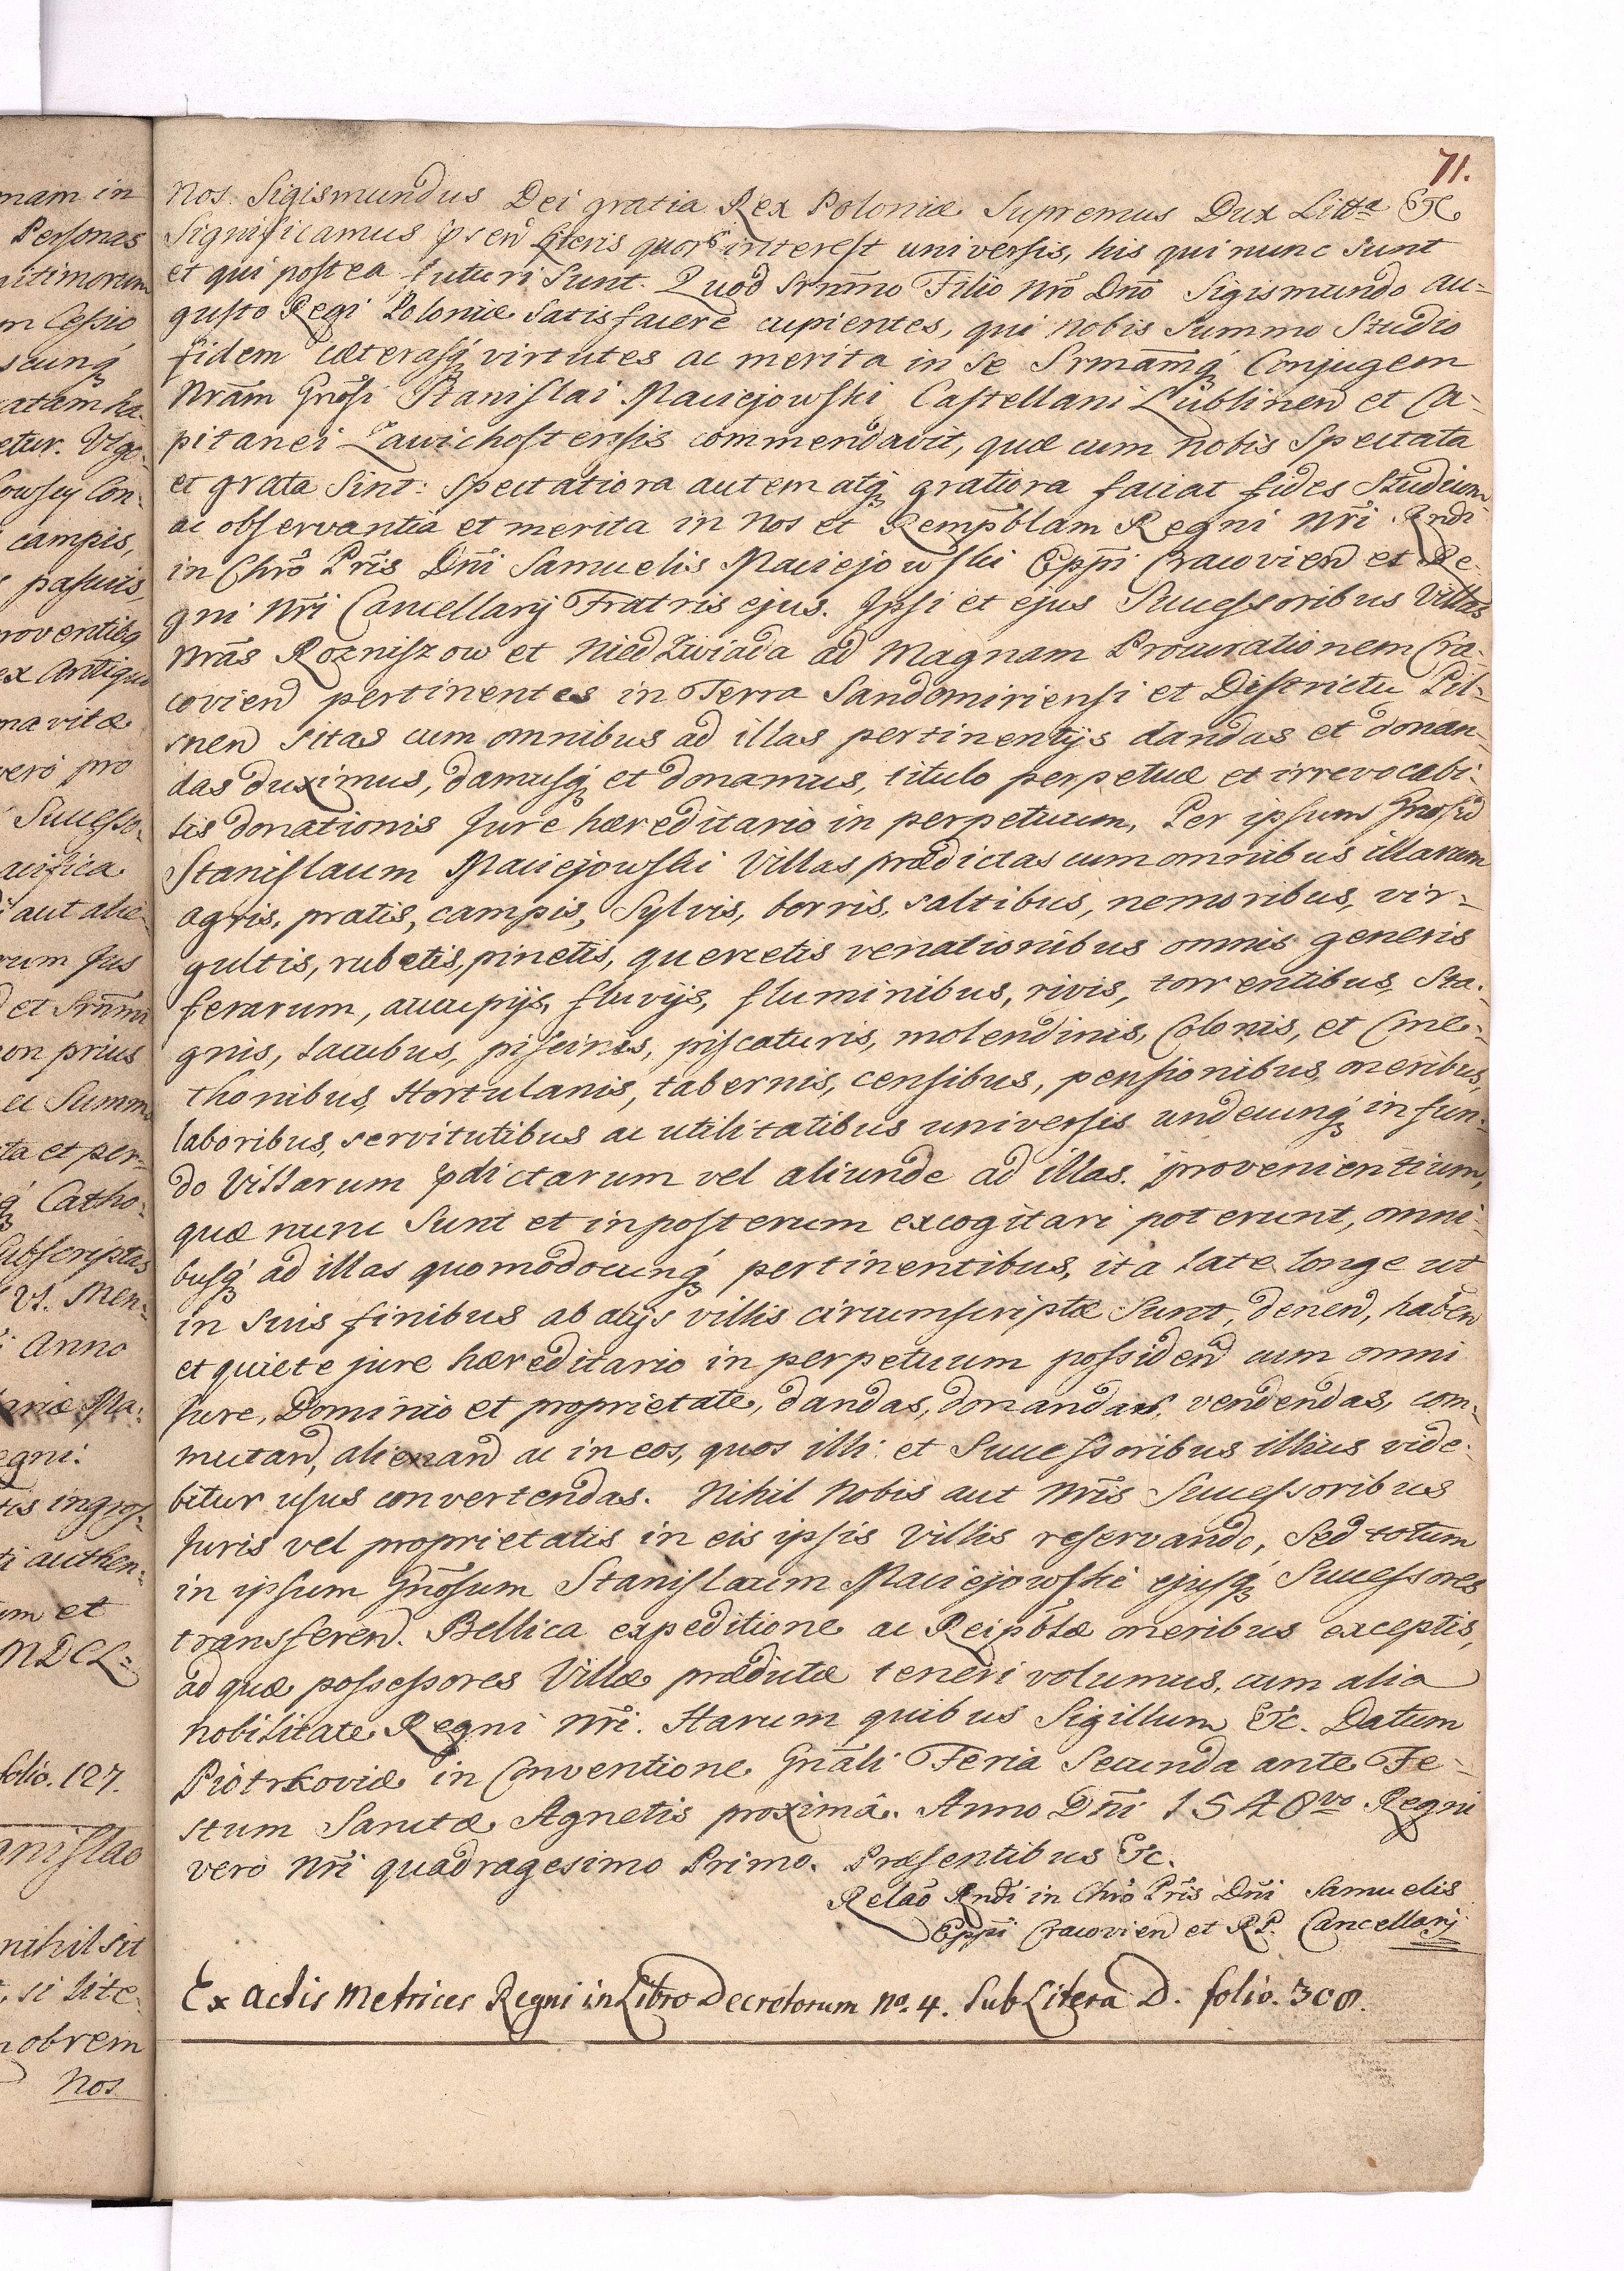 71.
Nos Sigismundus Dei gratia Rex Poloniæ Supremus Dux Littæ &c
Significamus pren Lteris quorũ interest universis, his qui nunc sunt
et qui postea futuri sunt. Quod Srm̃mo Filio Nrõ Dnõ Sigismundo au-
gusto Regi Poloniæ satisfacere cupientes, qui nobis summo Studio
fidem cæterasq́ virtutes ac merita in se Srmam̃q́ Conjugem
Nrãm Gnõsi Stanislai Maciejowski Castellani Lublinen et Ca-
pitanei Zawichostensis commendavit, quæ cum nobis Spectata
et grata sint: spectatiora autem atq́ gratiora faciat fides Studium
ac observantia et merita in Nos et Rempb̃lam Regni Nrĩ Rndĩ
in Chrõ Prĩs Dnĩ Samuelis Maciejowski Eppĩ Cracovien et Re-
gni Nrĩ Cancellarij Fratris ejus. Ipsi et ejus Successoribus Villas
Nrãs Rozniszow et Niedzwiada ad Magnam Procurationem Cra-
covien pertinentes in Terra Sandomiriensi et Districtu Pil-
snen sitas cum omnibus ad illas pertinentijs dandas et donan-
das duximus, damusq́ et donamus, titulo perpetuæ et irrevocabi-
lis donationis Jure hæreditario in perpetuum, Per ipsum Gnosũ
Stanislaum Maciejowski Villas prædictas cum omnibus illarum
agris, pratis, campis, Sylvis, borris, saltibus, nemoribus, vir-
gultis, rubetis, pinetis, quercetis venationibus omnis generis
ferarum, aucupijs, fluvijs, fluminibus, rivis, torrentibus, Sta-
gnis, lacubus, piscinis, piscaturis, molendinis, Colonis, et Cme-
thonibus, Hortulanis, tabernis, censibus, pensionibus, oneribus,
laboribus, servitutibus ac utilitatibus universis undecunq́ in fun-
do Villarum p̃dictarum vel aliunde ad illas. provenientium,
quæ nunc sunt et in posterum excogitari poterunt, omni-
busq́ ad illas quomodocunq́ pertinentibus, ita late longe ut
in suis finibus ab alijs villis circumscriptæ sunt, denen, haben
et quiete jure hæreditario in perpetuum possiden cum omni
Jure, Dominio et proprietate, dandas, donandas, vendendas, com-
mutan, alienan ac in eos, quos illi et Successoribus illius vide-
bitur usus convertendas. Nihil Nobis aut Nrĩs Successoribus
Juris vel proprietatis in eis ipsis Villis reservando, Sed totum
in ipsum Gnõsum Stanislaum Maciejowski ejusq́ Successores
transferen. Bellica expeditione ac Reipb̃læ oneribus exceptis,
ad quæ possessores Villæ prædictæ teneri volumus, cum alia
nobilitate Regni Nrĩ. Harum quibus Sigillum &c. Datum
Piotrkoviæ in Conventione Gnãli Feria Secunda ante Fe-
stum Sanctæ Agnetis proximâ. Anno Dnĩ 1548vo Regni
vero Nrĩ quadragesimo Primo. Præsentibus &c.
Relaõ Rndĩ in Chrõ Prĩs Dnĩ Samuelis
Eppĩ Cracovien et R.P. Cancellarij
Ex Actis Metrices Regni in Libro Decretorum No. 4. Sub Litera D. folio. 308.
nam in
Personas
m Cessio
campis,
ex Antiquo
vero pro
aut alie-
rum Jus
on prius
ta et per-
Catho-
Subscriptas
Anno
egni.
ti authen-
um et
folio. 127.
nihil sit
obrem
Nos